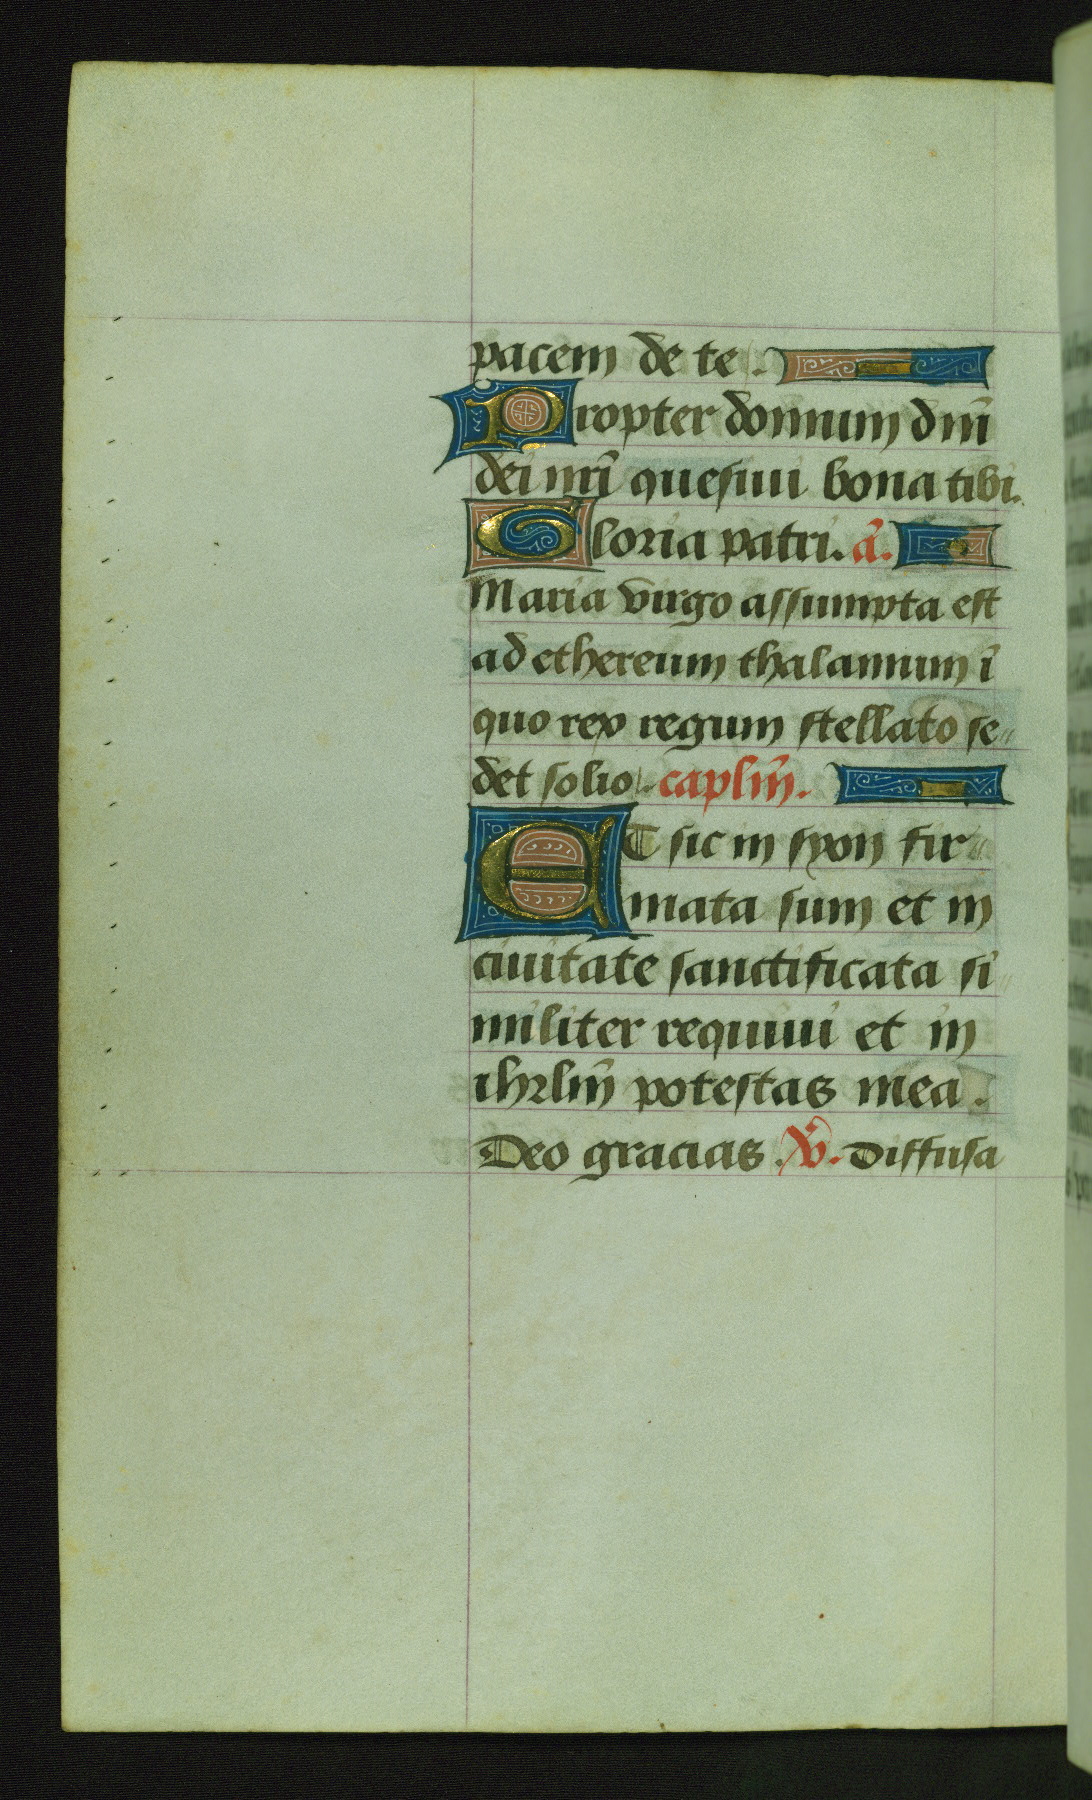 pacem de te.
Propter domum dn̄i
dei nr̄i quesiui bona tibi.
Gloria patri. a᷃.
Maria virgo assumpta est
ad ethereum thalamum ī
quo rex regum stellato se
det solio. caplm̄.
ET sic in syon fir
mata sum et in
ciuitate sanctificata si
militer requiui et in
ihrlm̄ potestas mea.
Deo gracias. ℣. Diffusa